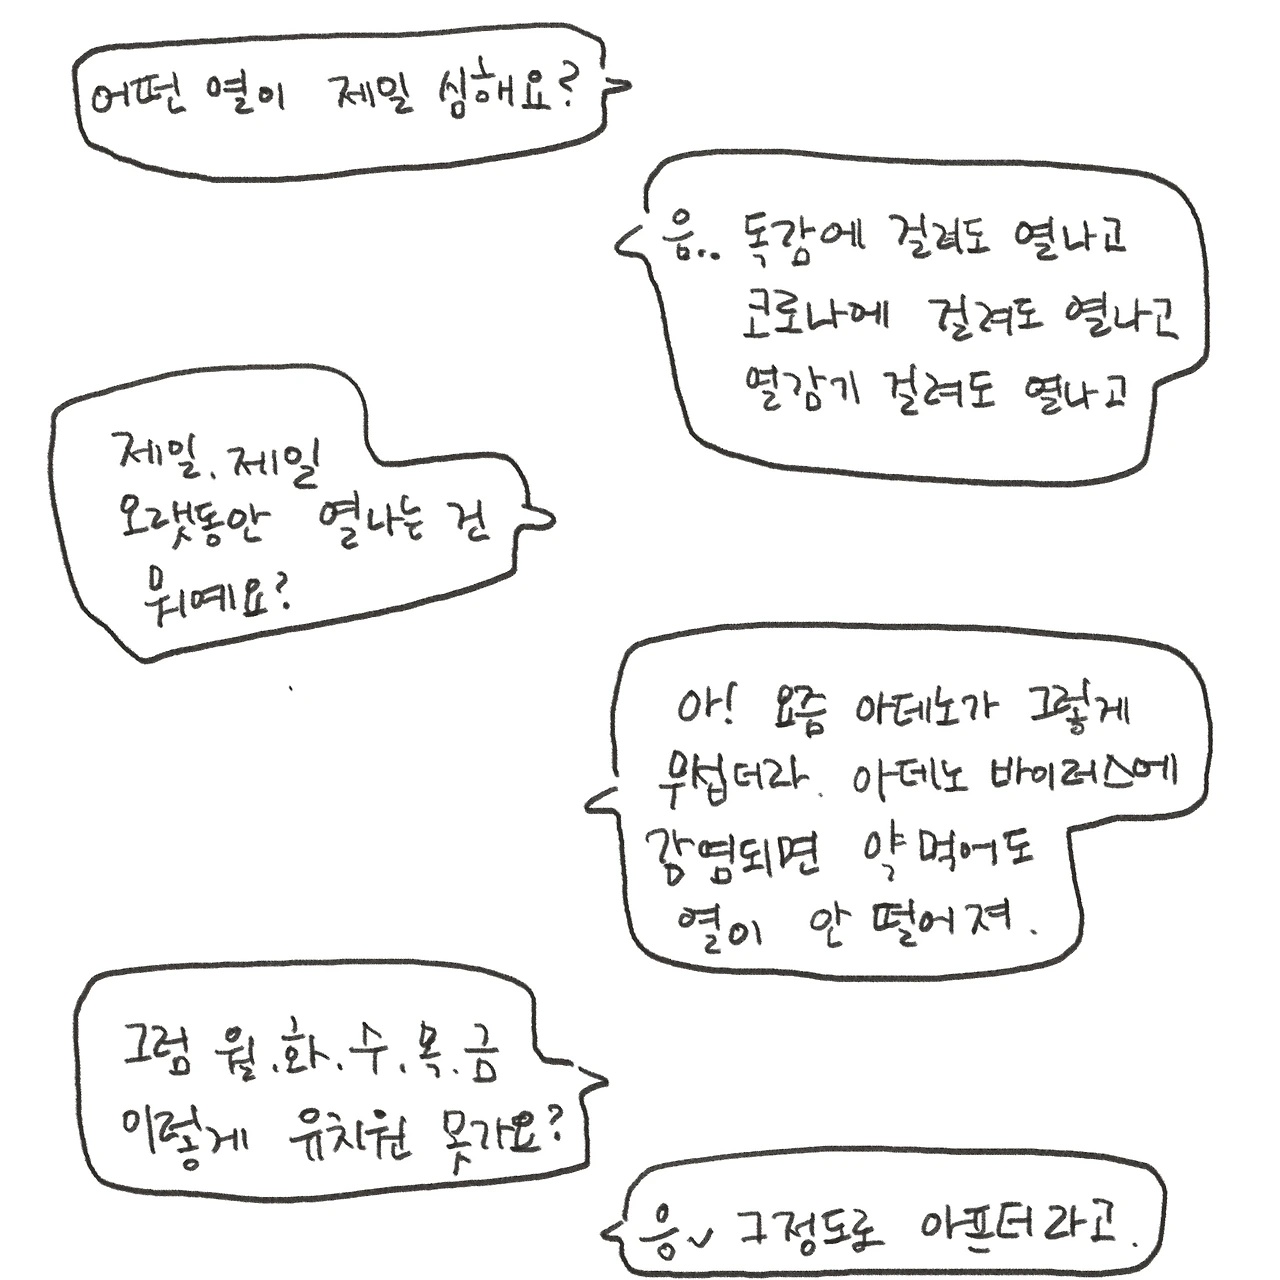 어떤 열이 제일 심해요?
음.. 독감에 걸려도 열나고
코로나에 걸려도 열나고
열감기 걸려도 열나고
제일, 제일
오랫동안 열나는 건
뭐예요?
아! 요즘 아데노가 그렇게
무섭더라. 아데노 바이러스에
감염되면 약 먹어도
열이 안 떨어져.
그럼 월.화.수.목.금
이렇게 유치원 못가요?
응~ 그정도로 아프더라고.